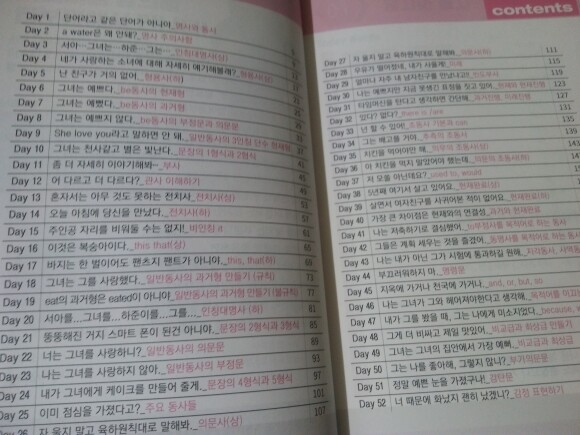 Day 1 단어라고 같은 단어가 아니야_명사와 동사
Day 2 a water은 왜 안돼?_명사 주의사항
Day 3 서아…그녀는…하준…그는…_인칭대명사(상)
Day 4 내가 사랑하는 소녀에 대해 자세히 얘기해볼까?_형용사(상)
Day 5 난 친구가 거의 없어_형용사(하)
Day 6 그녀는 예쁘다_be동사의 현재형
Day 7 그녀는 예뻤다_be동사의 과거형
Day 8 그녀는 예쁘지 않다_be동사의 부정문과 의문문
Day 9 She love you라고 말하면 안 돼_일반동사의 3인칭 단수 현재형
Day 10 그녀는 천사같고 별은 빛난다_문장의 1형식과 2형식
Day 11 좀 더 자세히 이야기해봐~_부사
Day 12 어 다르고 더 다르다?_관사 이해하기
Day 13 혼자서는 아무 것도 못하는 전치사_전치사(상) 49
Day 14 오늘 아침에 당신을 만났다_전치사(하) 57
Day 15 주인공 자리를 비워둘 수는 없지!_비인칭 it 61
Day 16 이것은 복숭아이다_this that(상) 65
Day 17 바지는 한 벌이어도 팬츠지 팬트가 아니야_this, that(하) 69
Day 18 그녀는 그를 사랑했다_일반동사의 과거형 만들기 (규칙) 73
Day 19 eat의 과거형은 eated이 아니야_일반동사의 과거형 만들기 (불규칙) 77
Day 20 서아를…그녀를…하준이를…그를…_인칭대명사(하) 81
Day 21 뚱뚱해진 거지 스마트 폰이 된건 아니야_문장의 2형식과 3형식 85
Day 22 너는 그녀를 사랑하니?_일반동사의 의문문 89
Day 23 나는 그녀를 사랑하지 않아_일반동사의 부정문 93
Day 24 내가 그녀에게 케이크를 만들어 줄게_문장의 4형식과 5형식 97
Day 25 이미 점심을 가졌다고?_주요 동사들 101
Day 26 자 울지 말고 육하원칙대로 말해봐_의문사(상) 107
contents
Day 27 자 울지 말고 육하원칙대로 말해봐_의문사(하) 111
Day 28 115
Day 29 얼마나 자주 내 남자친구를 만났냐고!! 119
Day 30 나는 예쁘지만 지금 못생긴 표정을 짓고 있어_현재와 현재진행 123
Day 31 타임머신을 탄다고 생각하면 간단해_과거진행, 미래진행 127
Day 32 있다? 없다?_there is / are
Day 33 난 할 수 있어!_조동사 기본과 can
Day 34 그는 배고플 거야_추측의 조동사
Day 35 치킨을 먹어야만 해_의무의 조동사(상)
Day 36 아 치킨을 먹지 말았어야 했는데_의무의 조동사(하)
Day 37 저 모솔 아닌데요?_used to, would
Day 38 5년째 여기서 살고 있어요_현재완료(상)
Day 39 살면서 여자친구를 사귀어본 적이 없어요_현재완료(하)
Day 40 가장 큰 차이점은 현재와의 연결성_과거와 현재완료
Day 41
Day 42 그들은 계획 세우는 것을 즐겼어
Day 43 나는 내가 아닌 그가 시험에 통과하길 원해
Day 44 부끄러워하지 마_명령문
Day 45 지옥에 가거나 천국에 가거나_and, or, but, so
Day 46 나는 그녀가 그와 헤어져야한다고 생각해
Day 47 내가 그를 봤을 때, 그는 나에게 미소지었다
Day 48 그게 더 비싸고 제일 맛있어_비교급과 최상급 만들기
Day 49 그녀는 그녀의 집안에서 가장 예뻐_비교급과 최상급
Day 50 그는 나를 좋아해, 그렇지 않니?_부가의문문
Day 51 정말 예쁜 눈을 가졌구나!_감탄문
Day 52 너 때문에 화났지 괜히 났겠니?_감정 표현하기